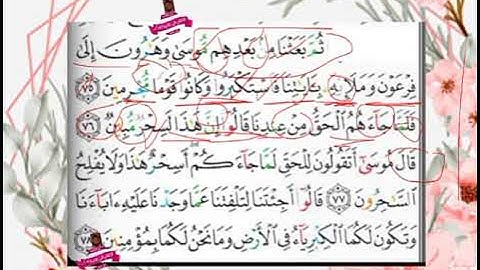 ثُمَّ بَعَثْنَا مِنۢ بَعْدِهِم مُّوسَىٰ وَهَٰرُونَ إِلَىٰ
فِرْعَوْنَ وَمَلَإِيْهِۦ بِـَٔايَٰتِنَا فَٱسْتَكْبَرُوا۟ وَكَانُوا۟ قَوْمًا مُّجْرِمِينَ ٧٥
فَلَمَّا جَآءَهُمُ ٱلْحَقُّ مِنْ عِندِنَا قَالُوٓا۟ إِنَّ هَٰذَا لَسِحْرٌ مُّبِينٌ ٧٦
قَالَ مُوسَىٰٓ أَتَقُولُونَ لِلْحَقِّ لَمَّا جَآءَكُمْ أَسِحْرٌ هَٰذَا وَلَا يُفْلِحُ
ٱلسَّٰحِرُونَ ٧٧ قَالُوٓا۟ أَجِئْتَنَا لِتَلْفِتَنَا عَمَّا وَجَدْنَا عَلَيْهِ ءَابَآءَنَا
وَتَكُونَ لَكُمَا ٱلْكِبْرِيَآءُ فِى ٱلْأَرْضِ وَمَا نَحْنُ لَكُمَا بِمُؤْمِنِينَ ٧٨